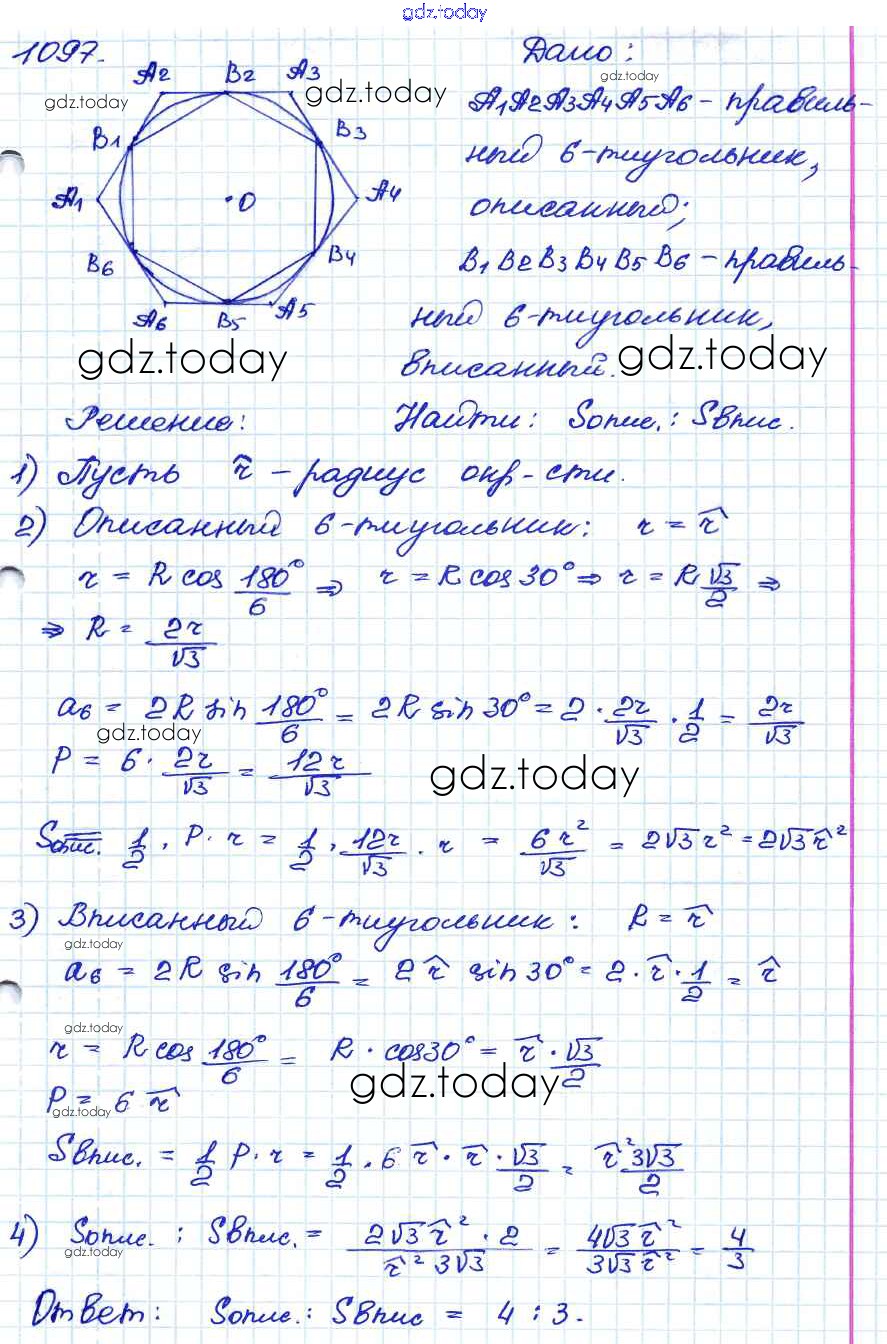 gdz.today
1097.
Дано:
A2 B2 A3
gdz.today
gdz.today gdz.today
A1A2A3A4A5A6 – правиль-
B1 B3
ный 6-тиугольник,
A1 O A4
описанный;
B6 B4
B1B2B3B4B5B6 – правиль-
A6 B5 A5
ный 6-тиугольник,
gdz.today gdz.today
вписанный.
Решение: Найти: Sопис. : Sвпис.
1) Пусть r̂ – радиус окр-сти.
2) Описанный 6-тиугольник: r = r̂
r = R cos 180°/6 ⇒ r = R cos 30° ⇒ r = R √3/2 ⇒
⇒ R = 2r/√3
a6 = 2R sin 180°/6 = 2R sin 30° = 2 · 2r/√3 · 1/2 = 2r/√3
gdz.today
P = 6 · 2r/√3 = 12r/√3
gdz.today
Sопис. = 1/2 · P · r = 1/2 · 12r/√3 · r = 6r²/√3 = 2√3 r² = 2√3 r̂²
3) Вписанный 6-тиугольник: R = r̂
gdz.today
a6 = 2R sin 180°/6 = 2 r̂ sin 30° = 2 · r̂ · 1/2 = r̂
gdz.today
r = R cos 180°/6 = R · cos 30° = r̂ · √3/2
gdz.today
P = 6 r̂
gdz.today
Sвпис. = 1/2 P · r = 1/2 · 6 r̂ · r̂ · √3/2 = r̂² 3√3/2
4) Sопис. : Sвпис. = 2√3 r̂² · 2/r̂² 3√3 = 4√3 r̂²/3√3 r̂² = 4/3
gdz.today
Ответ: Sопис. : Sвпис = 4 : 3.